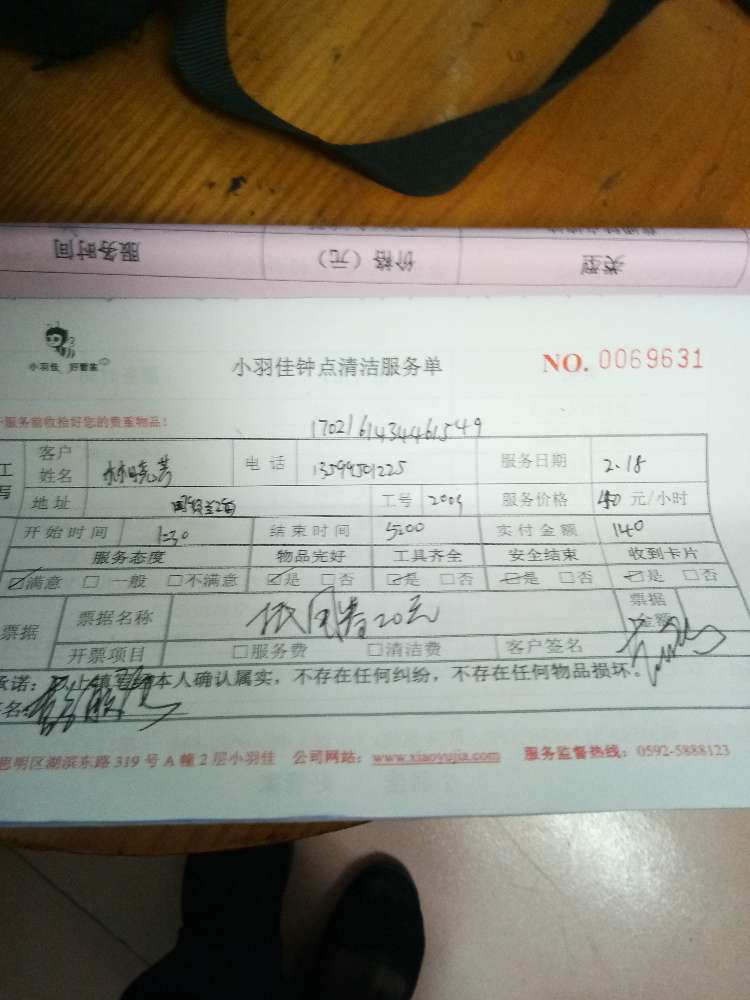 服务时间 价格（元） 类型
小羽佳 好管家
小羽佳钟点清洁服务单 NO. 0069631
服务前收拾好您的贵重物品！
1702161434461549
客户姓名 林晓芳 电话 13599501225 服务日期 2.18
地址 工号 服务价格 40 元/小时
开始时间 1:30 结束时间 5:00 实付金额 140
服务态度 物品完好 工具齐全 安全结束 收到卡片
☑满意 □一般 □不满意 ☑是 □否 ☑是 □否 ☑是 □否 ☑是 □否
票据 票据名称 20元 票据金额
开票项目 □服务费 □清洁费 客户签名
承诺：以上填写经本人确认属实，不存在任何纠纷，不存在任何物品损坏。
思明区湖滨东路319号A幢2层小羽佳 公司网站：www.xiaoyujia.com 服务监督热线：0592-5888123